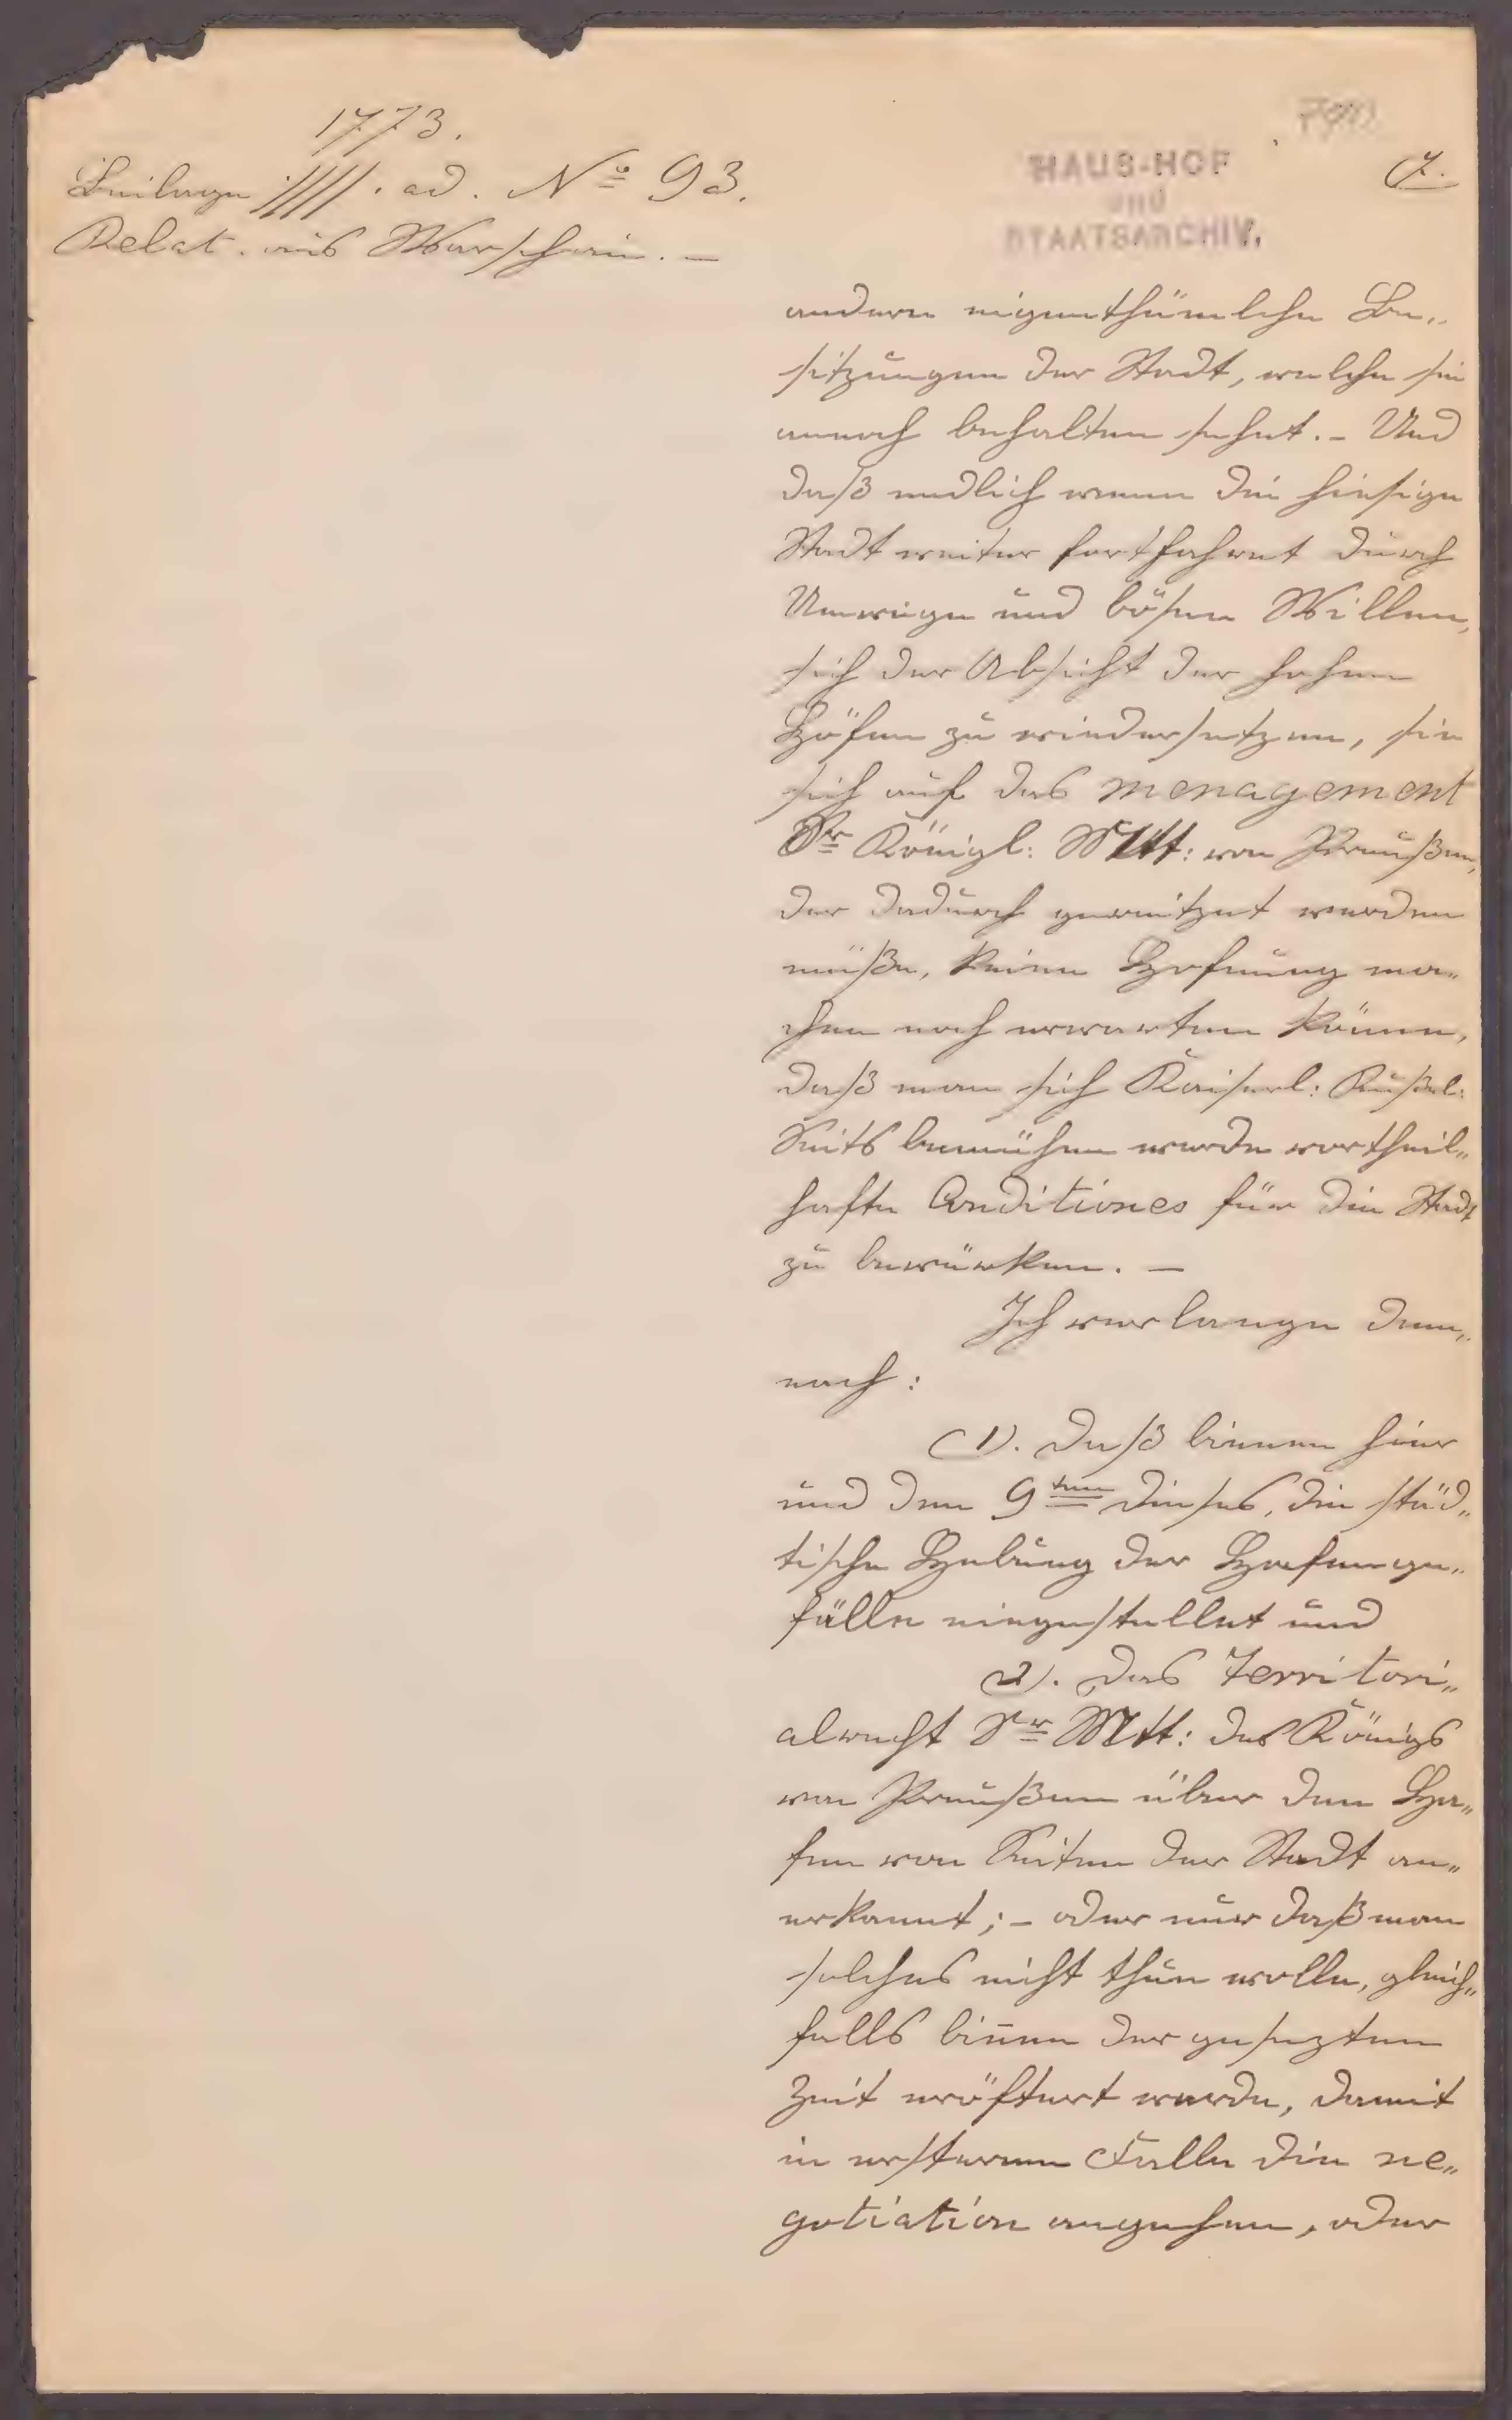 1773.
Beilage //// . ad. No 93.
Relat. aus Warschau. —
HAUS-HOF
und
STAATSARCHIV.
7.
andere eigenthümlche Be„
sitzungen der Stadt, welche sie
annoch behalten sehet. – Und
daß endlich wenn die hiesige
Stadt weiter fortfahret durch
Umwege und bösen Willen,
sich der Absicht der hohen
Höfen zu wiedersetzen, sie
sich auf das menagement
Sr Königl: Mtt: von Preußen,
der dadurch gereitzet werden
müße, keine Hofnung ma„
chen noch erwarten könne,
daß man sich Kaiserl: Rußl:
Seits bemühen werde vortheil„
hafte Conditiones für die Stadt
zu bewürken. —
Ich verlange dem„
nach:
1). Daß binnen hier
und dem 9ten dieses, die städ„
tische Hebung der Hafenge„
fälle eingestellet und
2). das Territori„
alrecht Sr Mtt: des Königs
von Preußen über den Ha„
fen von Seiten der Stadt an„
erkannt; – oder nur daß man
solches nicht thun wolle, gleich„
falls biñen der gesezten
Zeit eröfnet werde, damit
in ersterem Falle die ne„
gotiation angehen, oder